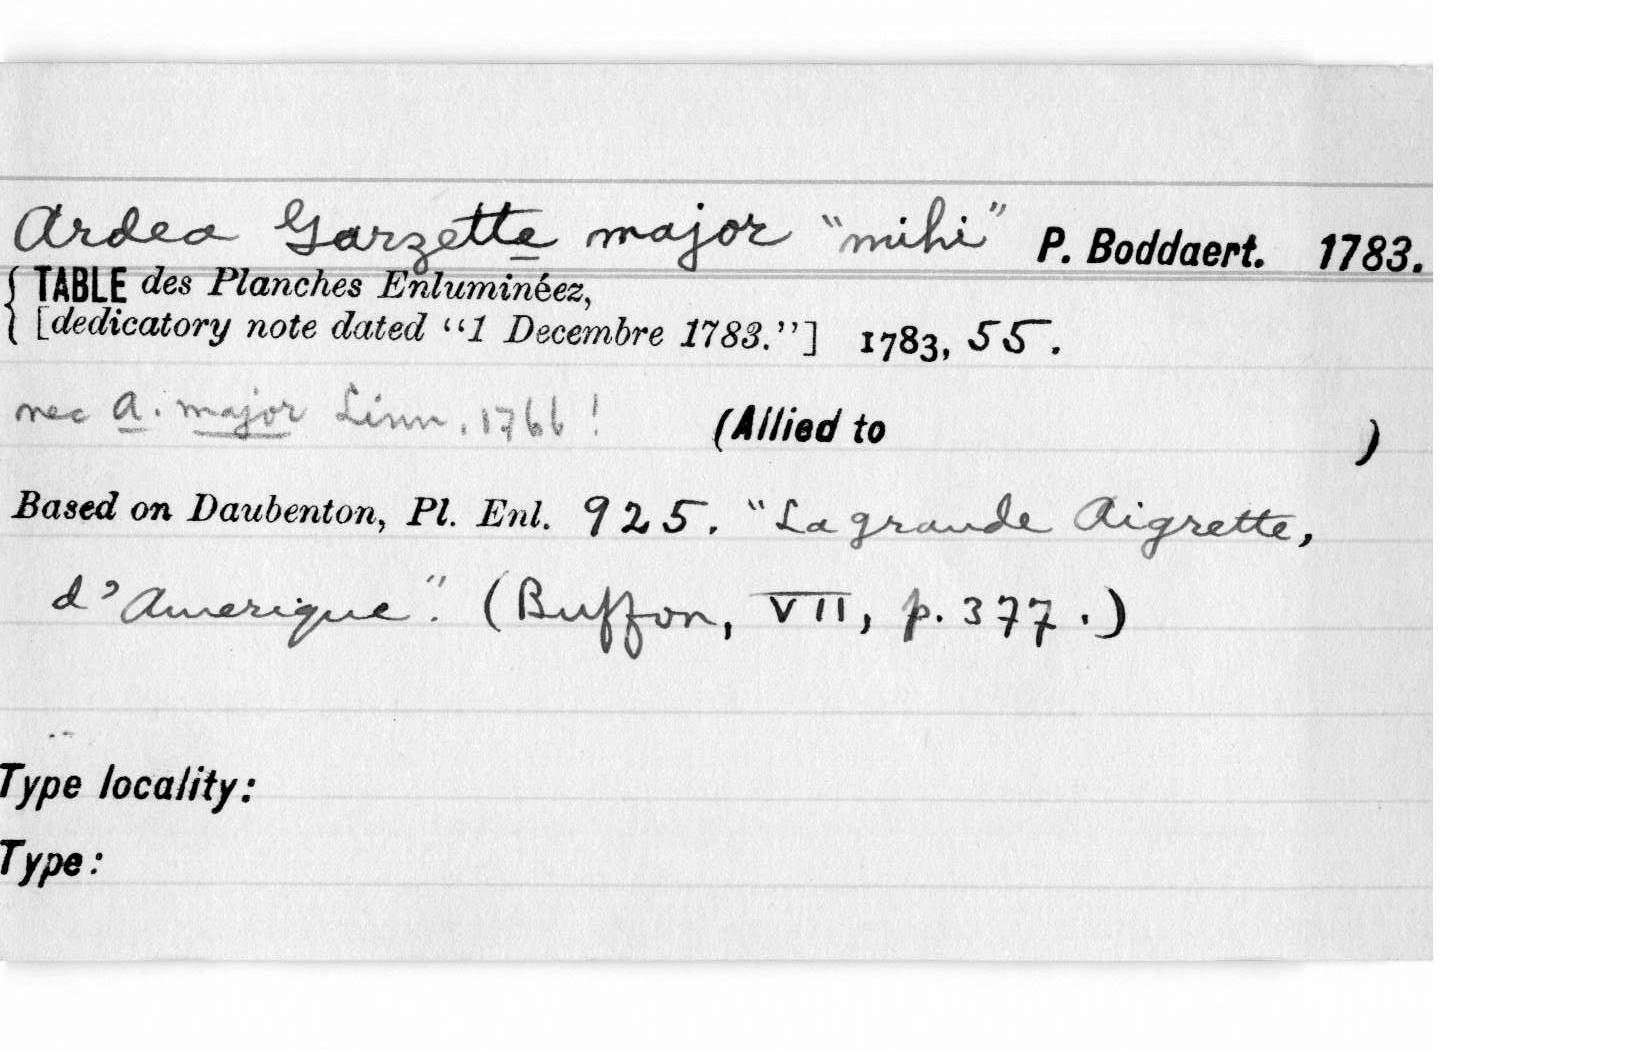 Ardea Garzette major "mihi" P. Boddaert. 1783.
{ TABLE des Planches Enluminéez,
[dedicatory note dated "1 Decembre 1783."] 1783, 55.
nec A. major Linn. 1766! (Allied to )
Based on Daubenton, Pl. Enl. 925. "La grande Aigrette,
d'Amerique". (Buffon, VII, p. 377.)
Type locality:
Type: